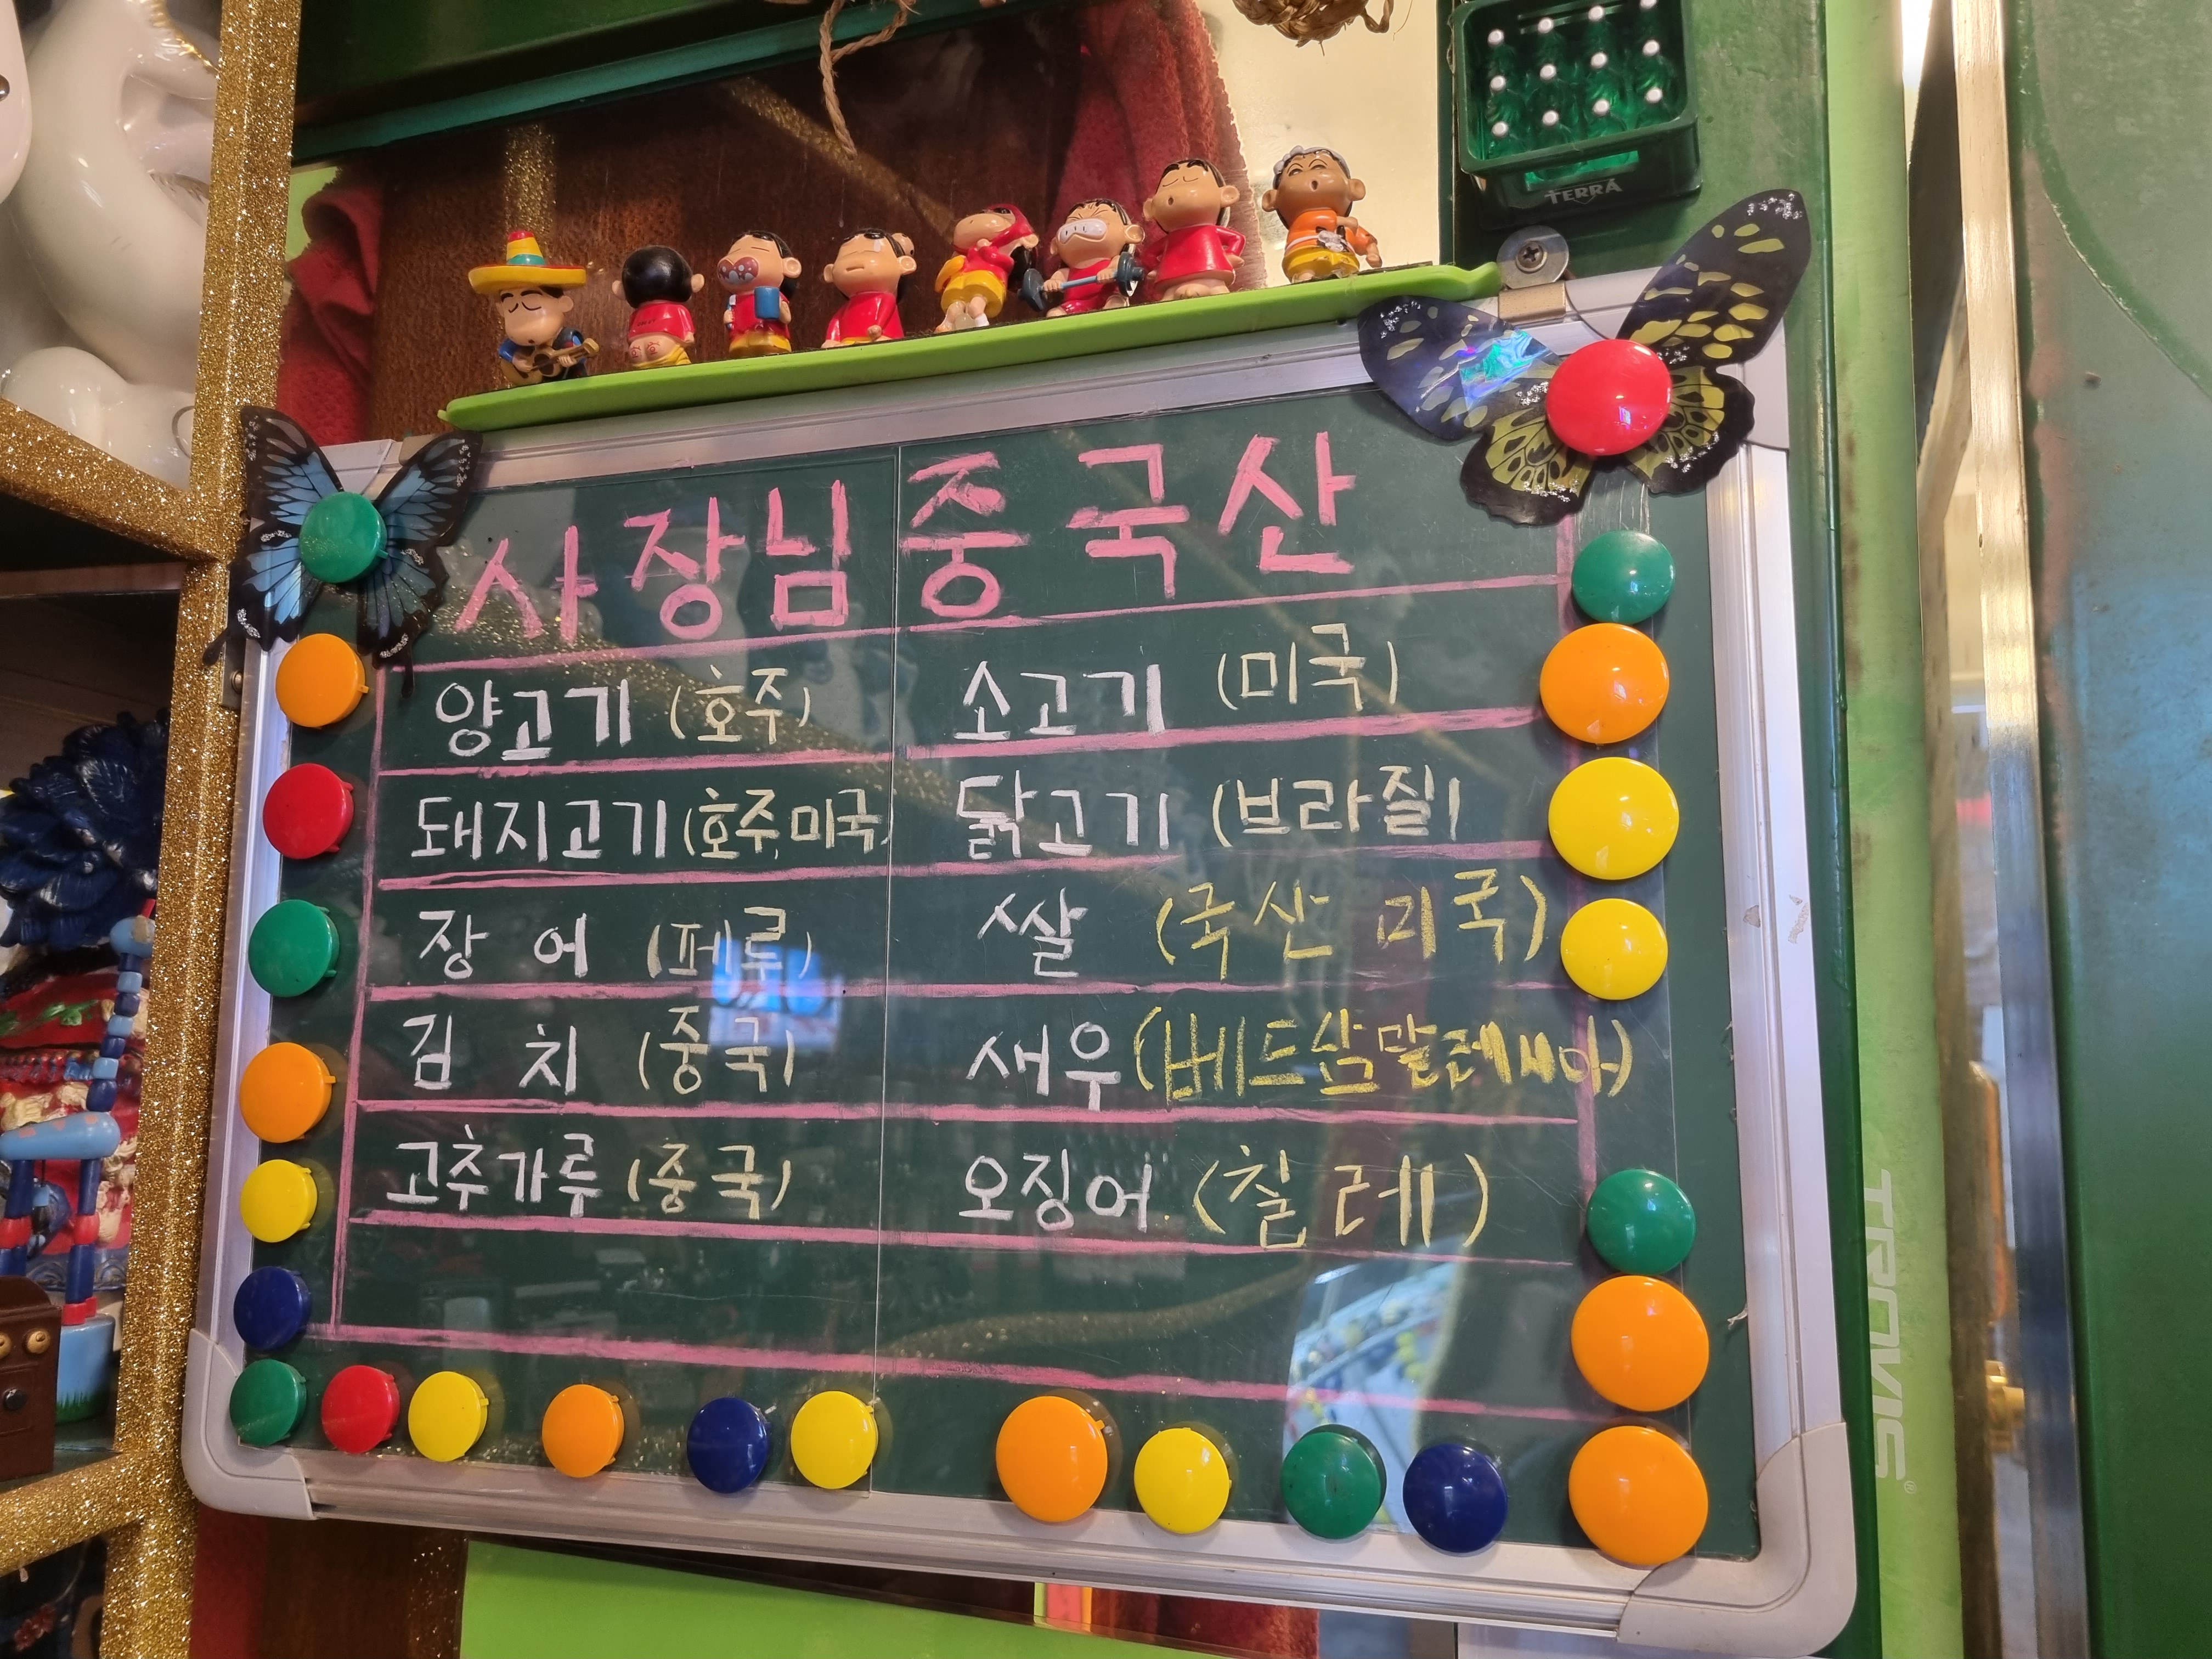 TERRA
사장님 중국산
양고기 (호주) 소고기 (미국)
돼지고기 (호주, 미국) 닭고기 (브라질)
장어 (페루) 쌀 (국산 미국)
김치 (중국) 새우 (베트남 말레시아)
고추가루 (중국) 오징어 (칠레)
TROVIS